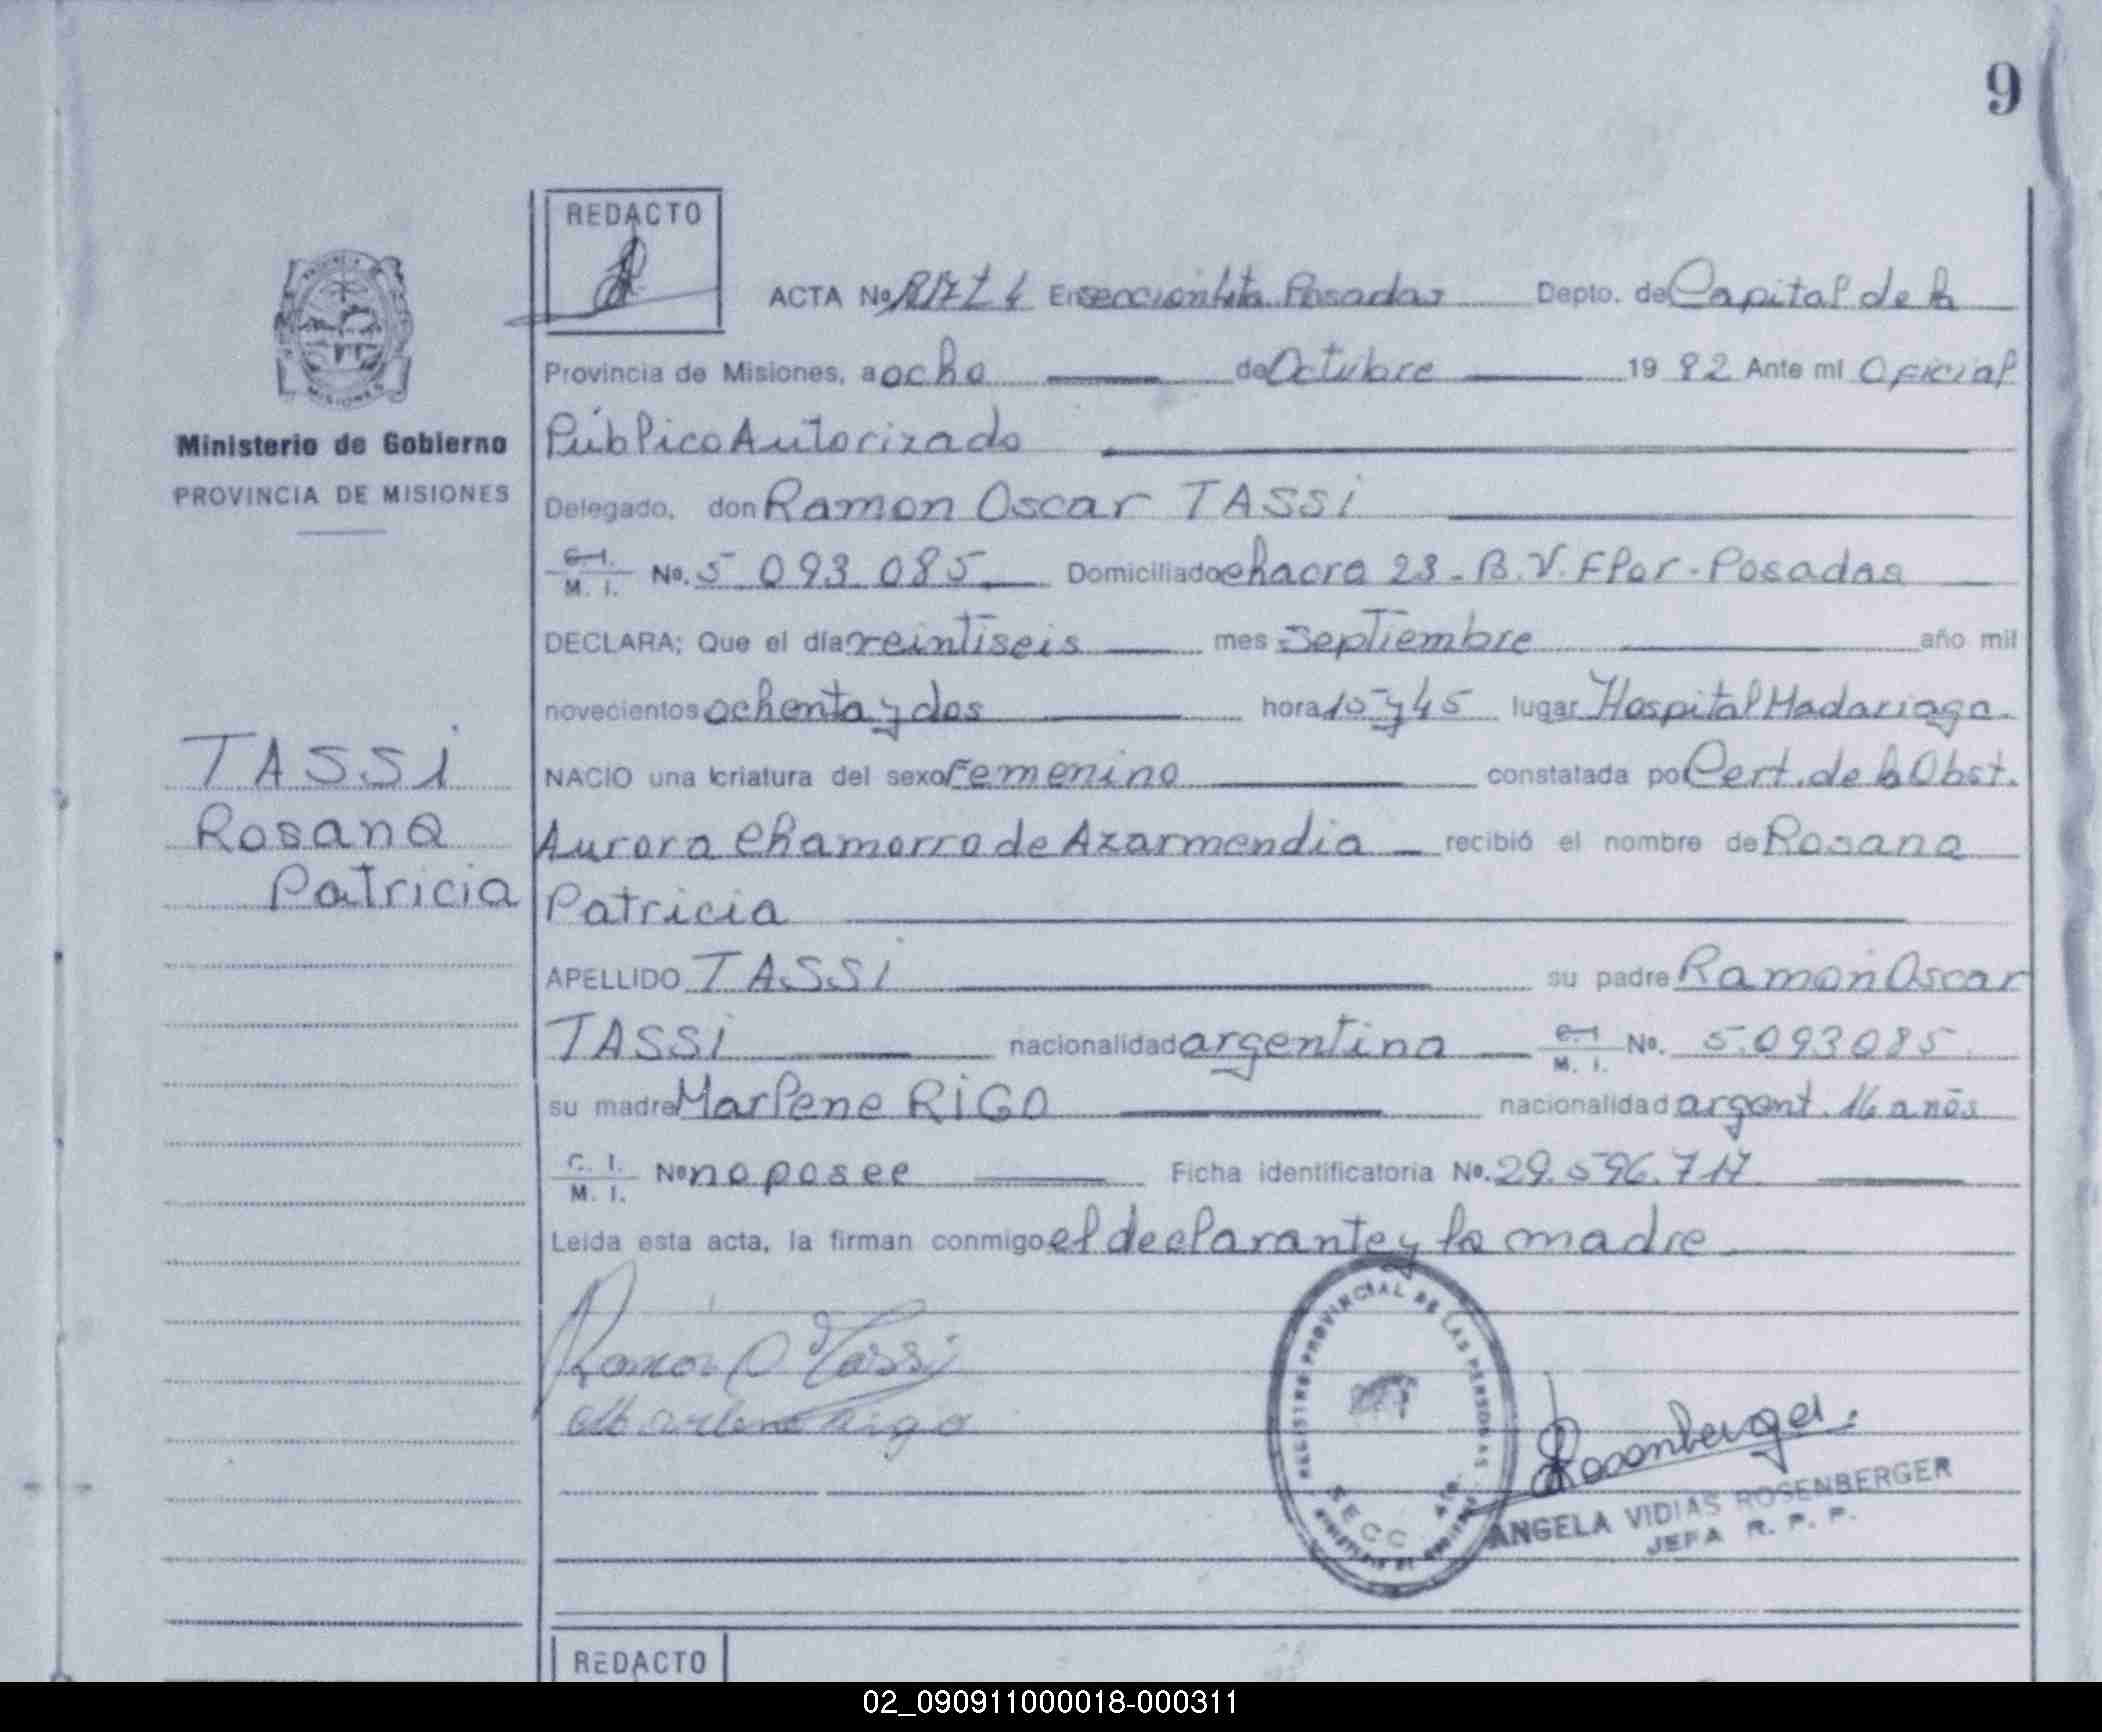 9
REDACTO
ACTA No En Sección 4ta Posadas Depto. de Capital de la
Provincia de Misiones, a ocho de Octubre 19 82 Ante mí Oficial
Ministerio de Gobierno
Público Autorizado
PROVINCIA DE MISIONES
Delegado, don Ramon Oscar TASSi
C. I. M. I. No. 5 093 085 Domiciliado chacra 23 - B.V. Flor - Posadas
DECLARA; Que el día veintiseis mes Septiembre año mil
novecientos ochenta y dos hora 15 y 45 lugar Hospital Madariaga.
TASSi
NACIO una criatura del sexo Femenino constatada po Cert. de la Obst.
Rosana
Aurora Chamorro de Azarmendia recibió el nombre de Rosana
Patricia
Patricia
APELLIDO TASSi su padre Ramon Oscar
TASSi nacionalidad argentina C. I. M. I. No. 5.093085
su madre Marlene RiGO nacionalidad argent. 16 anõs
C. I. M. I. No no posee Ficha identificatoria No. 29.596.717
Leida esta acta, la firman conmigo el declarante y la madre
Ramon O Tassi
Marlene Rigo
REGISTRO PROVINCIAL DE LAS PERSONAS
SECC 4ta.
Rosenberger
ANGELA VIDIAS ROSENBERGER
JEFA R. P. P.
REDACTO
02_090911000018-000311